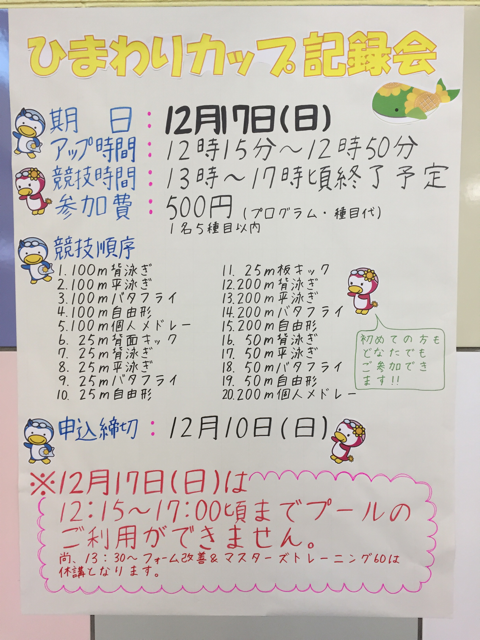 ひまわりカップ記録会
期 日:12月17日(日)
アップ時間:12時15分~12時50分
競技時間:13時~17時頃終了予定
参加費:500円(プログラム・種目代)
1名5種目以内
競技順序
1. 100m背泳ぎ
2. 100m平泳ぎ
3. 100mバタフライ
4. 100m自由形
5. 100m個人メドレー
6. 25m背面キック
7. 25m背泳ぎ
8. 25m平泳ぎ
9. 25mバタフライ
10. 25m自由形
11. 25m板キック
12. 200m背泳ぎ
13. 200m平泳ぎ
14. 200mバタフライ
15. 200m自由形
16. 50m背泳ぎ
17. 50m平泳ぎ
18. 50mバタフライ
19. 50m自由形
20. 200m個人メドレー
初めての方も
どなたでも
ご参加でき
ます!!
申込締切:12月10日(日)
※12月17日(日)は
12:15~17:00頃までプールの
ご利用ができません。
尚、13:30~フォーム改善&マスターズトレーニング60は
休講となります。